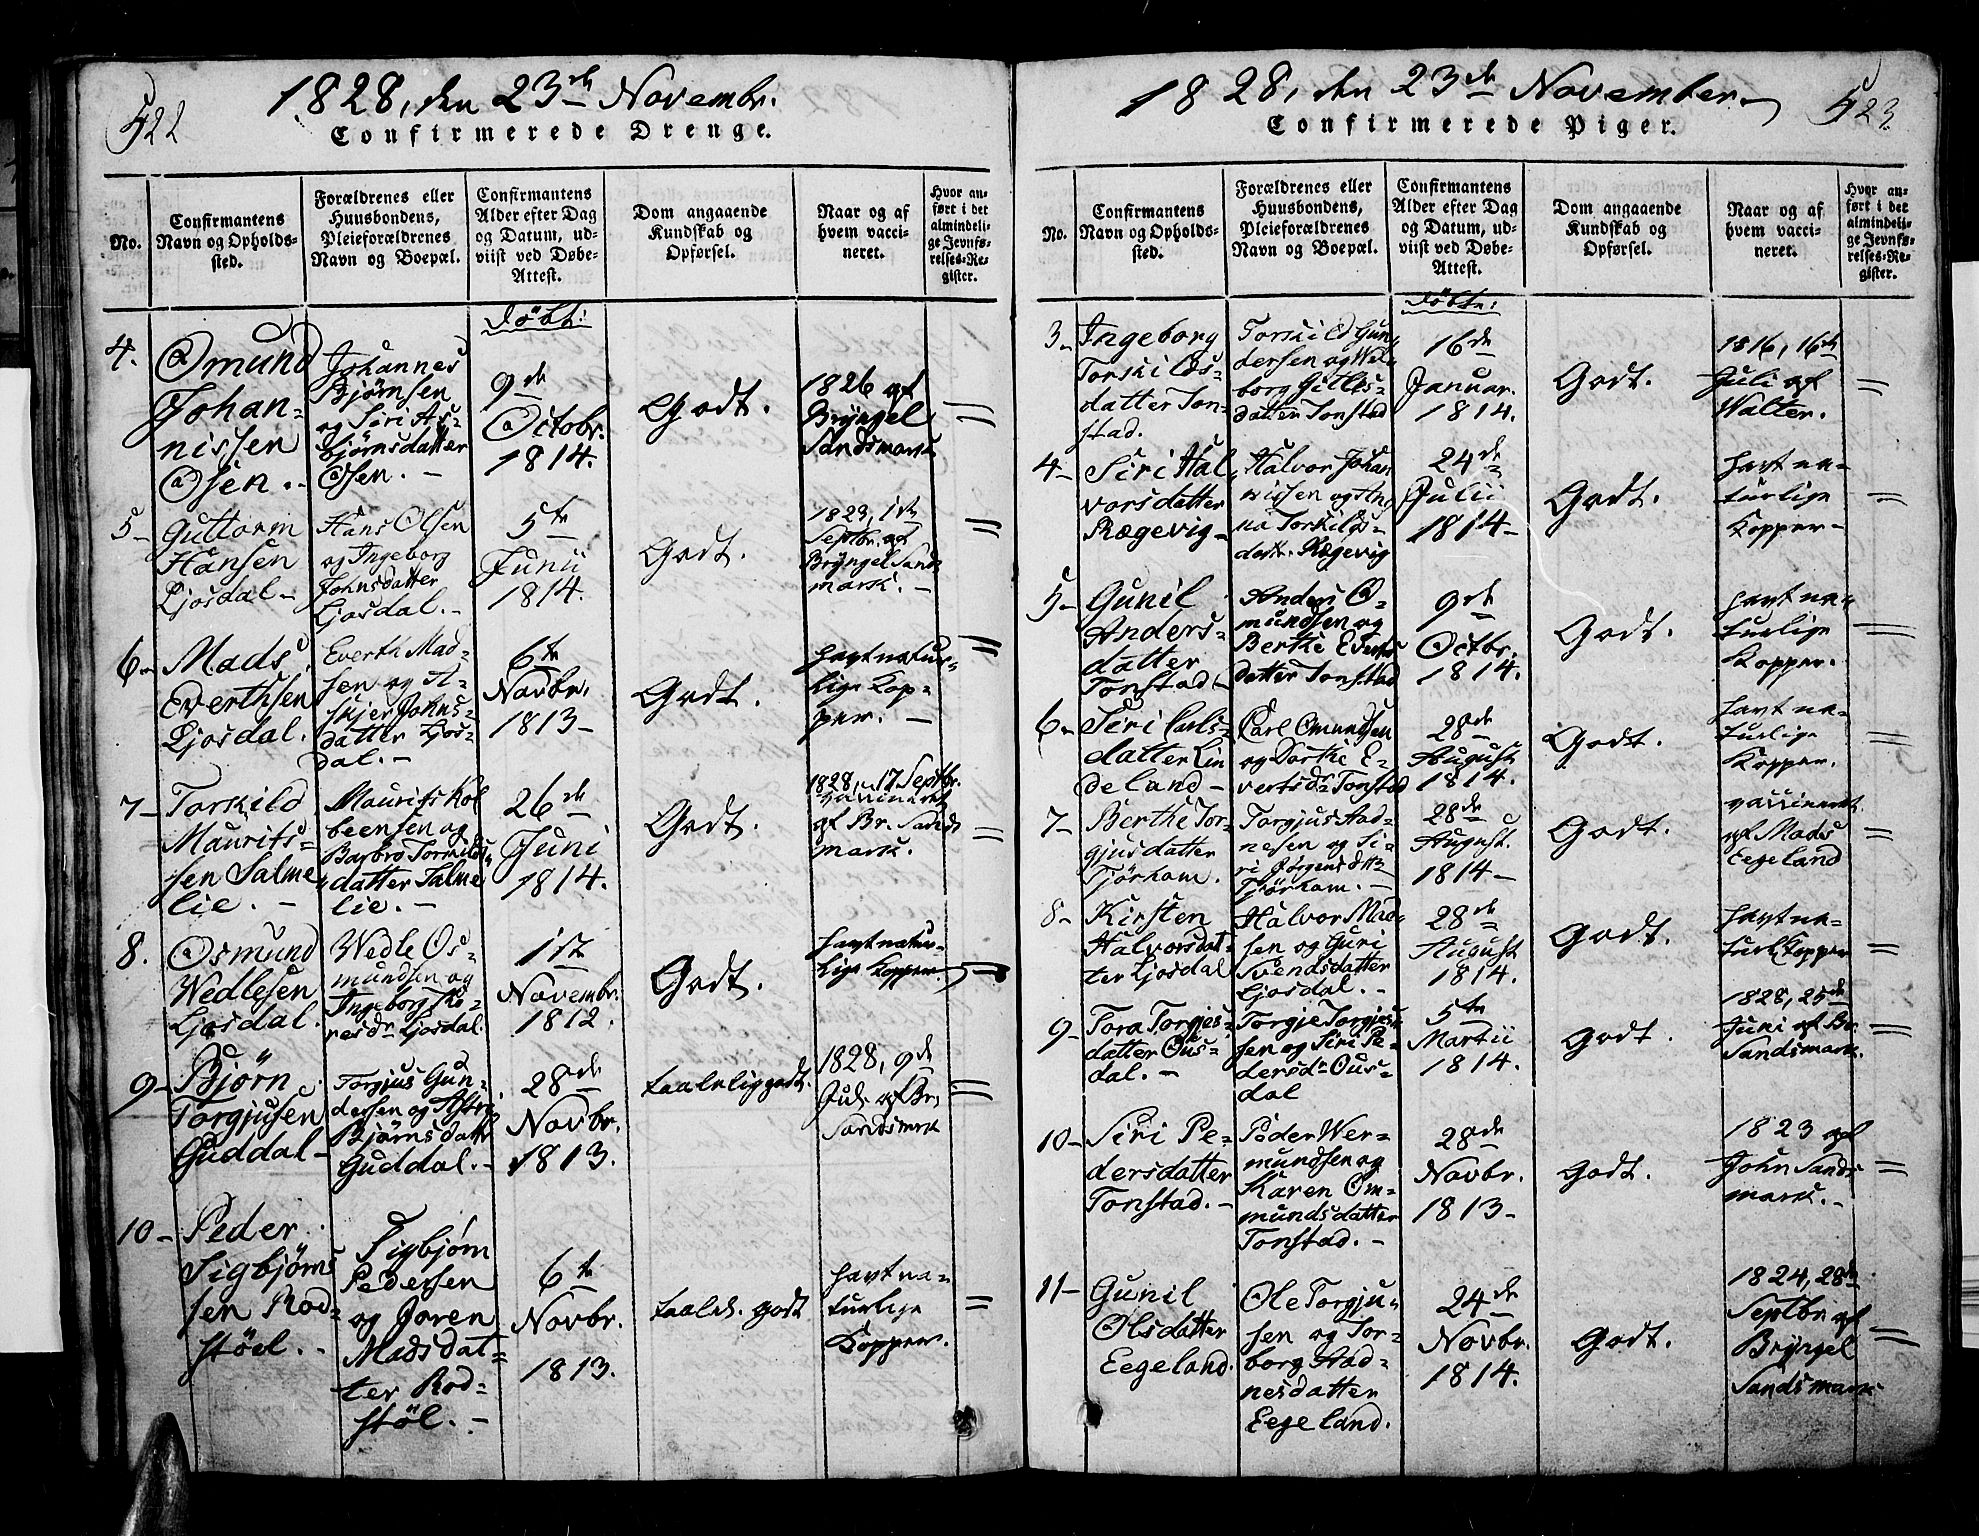 522
1828, den 23de Novembr.
Confirmerede Drenge.
No.
Confirmantens
Navn og Opholds-
sted.
Forældrenes eller
Huusbondens,
Pleieforældrenes
Navn og Boepæl.
Confirmantens
Alder efter Dag
og Datum, ud-
viist ved Døbe-
Attest.
Dom angaaende
Kundskab og
Opførsel.
Naar og af
hvem vacci-
neret.
Hvor an-
ført i det
almindeli-
ge Jevnfø-
relses-Re-
gister.
døbt:
4.
Omund
Johan-
nissen
Osen. -
Johannes
Bjørnsen
og Siri As-
bjørnsdatter
Osen. -
9de
Octobr.
1814.
Godt.
1826 af
Brÿngel
Sandsmark
=
5-
Guttorm
Hansen
Ljosdal -
Hans Olsen
og Ingeborg
Johnsdatter
Ljosdal. -
5te
Junii
1814.
Godt.
1823, 1ste
Septbr. af
Brÿngel Sands
mark. -
=
6-
Mads
Everthsen
Ljosdal.
Everth Mad-
sen og A-
skjer Johns-
datter Ljos-
dal. -
6te
Novbr.
1813-
Godt.
havt natur-
lige Kop-
per. -
=
7-
Torkild
Maurits-
sen Salme
lie. -
Maurits Kol
beensen og
Barbro Torkilds-
datter Salme
lie. -
26de
Juni
1814.
Godt.
1828, 17 Septbr.
vaccineret
af Br. Sands
mark.
=
8.
Osmund
Wedlesen
Ljosdal.
Wedle Os-
mundsen og
Ingeborg To-
resdr Ljosdal.
1ste
Novembr.
1812.
Godt.
havt natur-
lige Kopper.
=
9-
Bjørn
Torgjusen
Guddal -
Torgjus Gun-
dersen og Astri
Bjørnsdattr
Guddal. -
28de
Novbr.
1813.
taaleliggodt.
1828, 9de
Juli af Br.
Sandsmrk
=
10-
Peder
Sigbjørns
sen Rod-
støel. -
Sigbjørn
Pedersen
og Joren
Madsdat-
ter Rod-
støl. -
6te
Novbr.
1813.
taalel. godt
havt na-
turlige
Kopper.
=
1828, den 23de November.
523.
Confirmerede Piger.
No.
Confirmantens
Navn og Opholds-
sted.
Forældrenes eller
Huusbondens,
Pleieforældrenes
Navn og Boepæl.
Confirmantens
Alder efter Dag
og Datum, ud-
viist ved Døbe-
Attest.
Dom angaaende
Kundskab og
Opførsel.
Naar og af
hvem vacci-
neret.
Hvor an-
ført i det
almindeli-
ge Jevnfø-
relses-Re-
gister.
døbte:
3-
Ingeborg
Torkilds-
datter Ton-
stad.
Torkild Gun
dersen og Wal
borg Gitles-
datter Tonstad
16de
Januar.
1814.
Godt.
1816, 16de
Juli af
Walter.
=
4-
Siri Hal
vorsdatter
Rægevig -
Halvor Johan
nissen og An
na Torkilds-
datr. Rægevig
24de
Julii
1814-
Godt.
havt na-
turlige
Kopper -
=
5-
Gunil
Anders-
datter
Tonstad -
Anders O-
mundsen og
Berthe Everts
datter Tonstad
9de
Octbr.
1814.
Godt.
havt na-
turlige
Kopper.
=
6-
Siri Carls-
datter Lin
deland -
Carl Omundsen
og Dorthe E-
vertsdr Tonstad
28de
August
1814.
Godt.
havt na-
turlige
Kopper.
=
7-
Berthe Tor-
gjusdatter
Tjørhom.
Torgjus Aad-
nesen og Si-
ri Jørgensdttr
Tjørhom. -
28de
August.
1814-
Godt.
vaccineret
af Mads
Eegeland
=
8-
Kirsten
Halvorsdat-
ter Ljosdal
Halvor Mad-
sen og Guri
Svendsdatter
Ljosdal. -
28de
August
1814.
Godt.
havt na-
turl. Kopper
=
9-
Tora Torgjes-
datter Ous-
dal. -
Torgje Torgjes-
sen og Siri Pe-
dersdr Ous-
dal
5te
Martii
1814.
Godt.
1828, 25de
Juni af Br.
Sandsmark.
=
10-
Siri Pe-
dersdatter
Tonstad. -
Peder Wer-
mundsen og
Karen Om-
mundsdatter
Tonstad. -
28de
Novbr.
1813-
Godt.
1823 af
John Sands
mark. -
=
11-
Gunil
Olsdatter
Eegeland.
Ole Torgju-
sen og Tor-
borg Aad-
nesdatter
Eegeland.
24de
Novbr.
1814.
Godt.
1824, 28de
Septbr. af
Brÿngel
Sandsmark
=